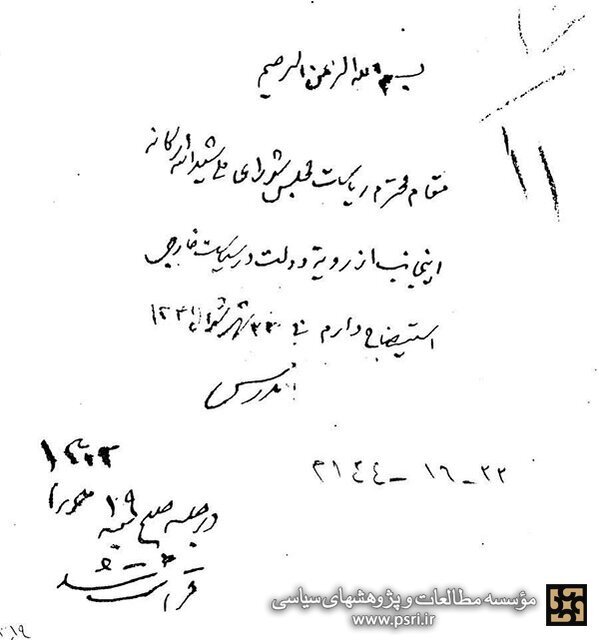 بسم الله الرحمن الرحیم
مقام محترم ریاست مجلس شورای ملی شید الله ارکانه
اینجانب از رویهٔ دولت در سیاست خارجی
استیضاح دارم ۲۳ شهر شوال ۱۳۴۱
مدرس
۲۲ - ۱۶ - ۲۱۴۴
در جلسه صبح شنبه ۱۹
قرائت شد
مؤسسه مطالعات و پژوهشهای سیاسی
www.psri.ir